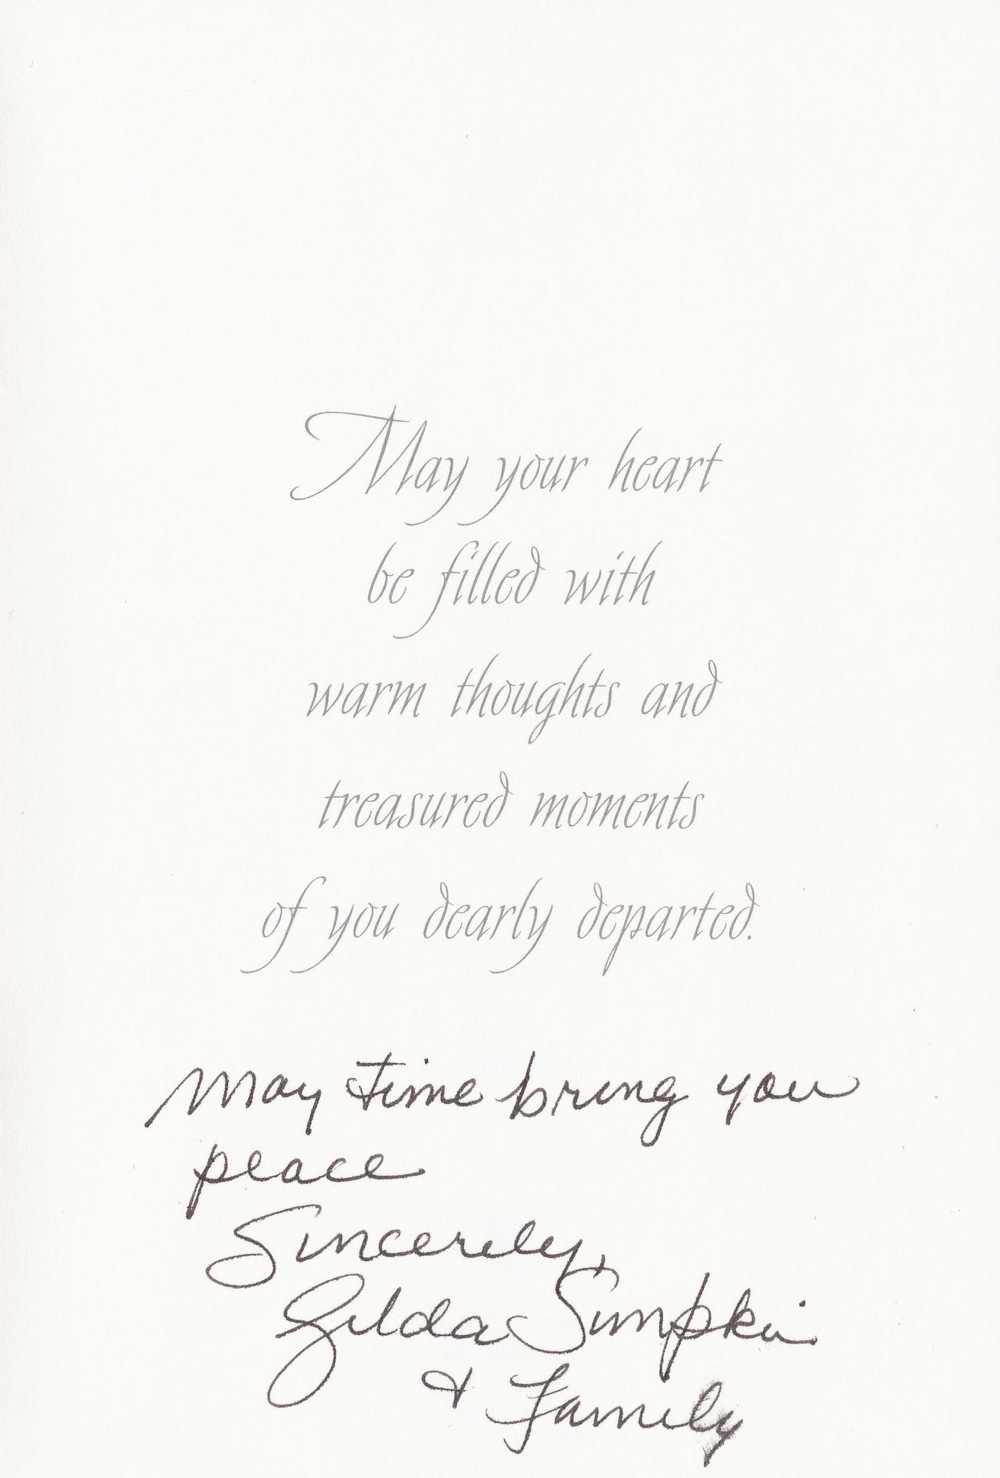 May your heart
be filled with
warm thoughts and
treasured moments
of you dearly departed.
May time bring you
peace
Sincerely,
Gilda Simpkin
& Family